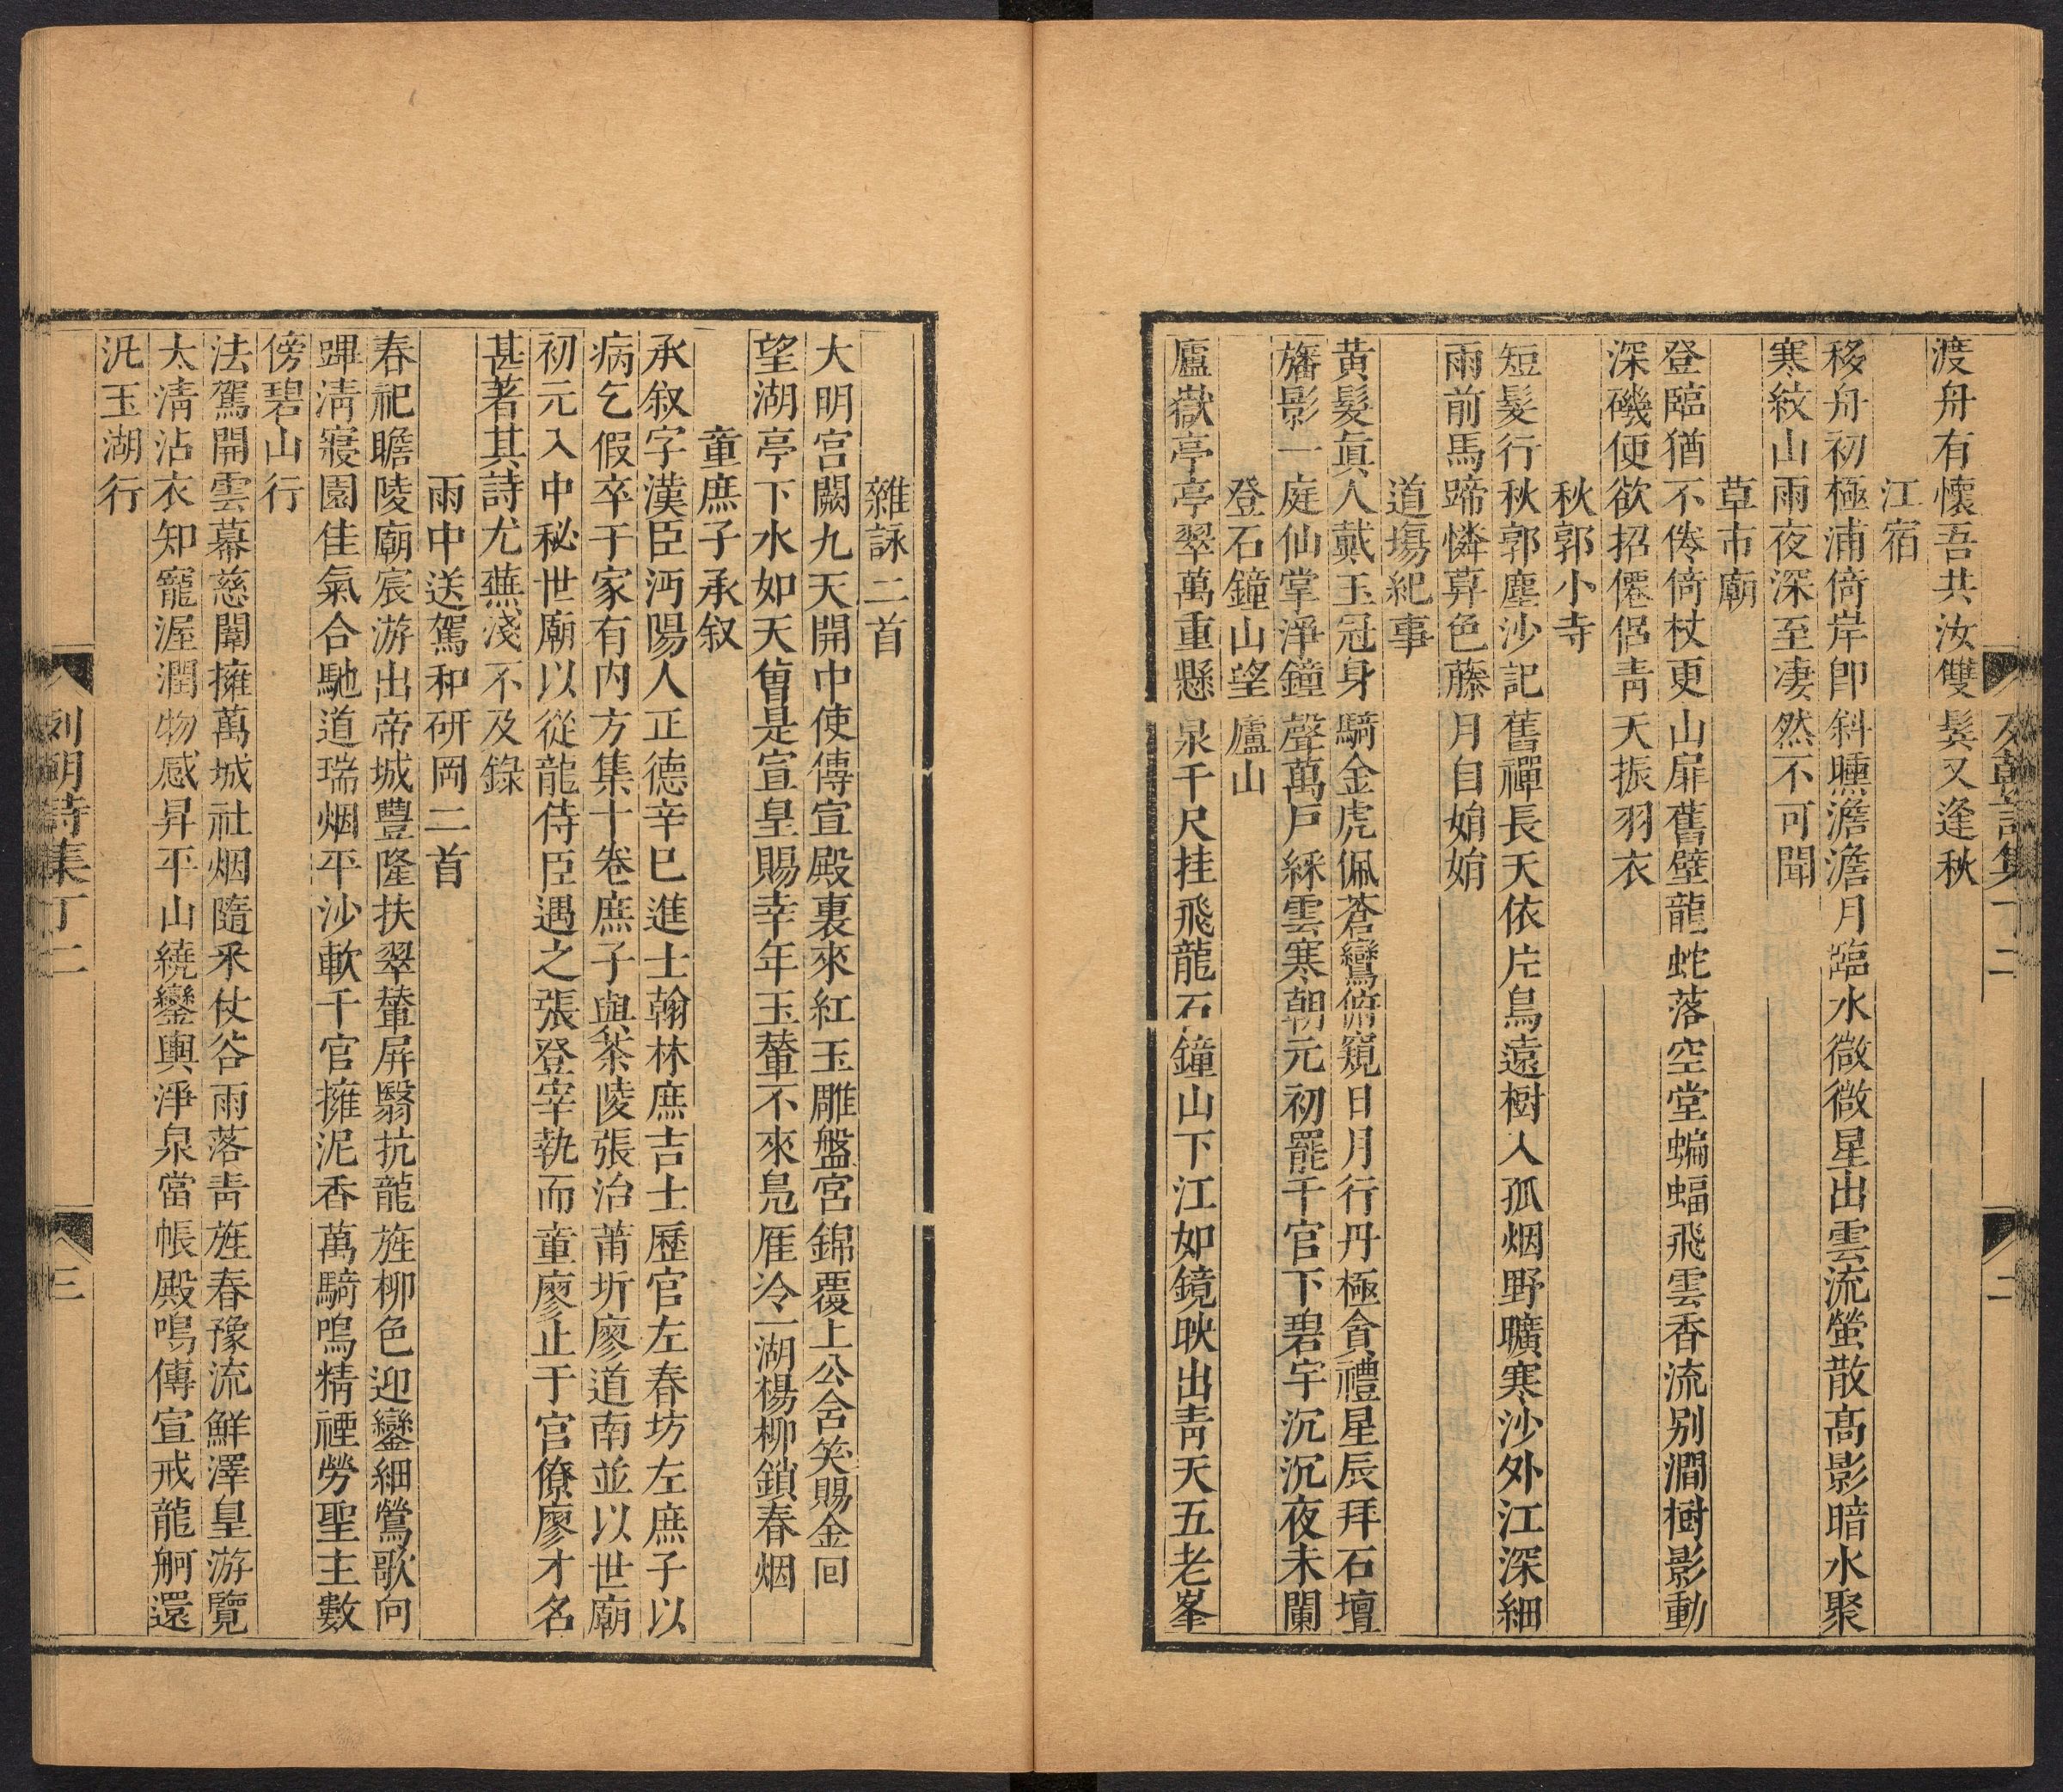 渡舟有懷吾共汝雙鬂又逢秋
江宿
移舟初極浦倚岸卽斜曛澹澹月臨水微微星出雲流螢散高影暗水聚
寒紋山雨夜深至凄然不可聞
草市廟
登臨猶不倦倚杖更山扉舊壁龍蛇落空堂蝙蝠飛雲香流别澗樹影動
深磯便欲招僊侶靑天振羽衣
秋郭小寺
短髮行秋郭塵沙記舊禪長天依片鳥遠樹入孤烟野曠寒沙外江深細
雨前馬蹄憐葬色藤月自娟娟
道塲紀事
黃髮眞人戴玉冠身騎金虎佩蒼鸞俯窺日月行丹極貪禮星辰拜石壇
旛影一庭仙掌淨鐘聲萬戶綵雲寒朝元初罷千官下碧宇沉沉夜未闌
登石鐘山望廬山
廬嶽亭亭翠萬重懸泉千尺挂飛龍石鐘山下江如鏡映出靑天五老峯
列朝詩集丁二
二
雜詠二首
大明宮闕九天開中使傳宣殿裏來紅玉雕盤宮錦覆上公含笑賜金回
望湖亭下水如天曾是宣皇賜幸年玉輦不來鳧雁冷一湖楊柳鎖春烟
童庶子承叙
承叙字漢臣沔陽人正德辛巳進士翰林庶吉士歷官左春坊左庶子以
病乞假卒于家有内方集十卷庶子與茶陵張治莆圻廖道南並以世廟
初元入中秘世廟以從龍侍臣遇之張登宰執而童廖止于官僚廖才名
甚著其詩尤蕪淺不及錄
雨中送駕和研岡二首
春祀瞻陵廟宸游出帝城豐隆扶翠輦屏翳抗龍旌柳色迎鑾細鶯歌向
蹕淸寢園佳氣合馳道瑞烟平沙軟千官擁泥香萬騎鳴精禋勞聖主數
傍碧山行
法駕開雲幕慈闈擁萬城社烟隨釆仗谷雨落靑旌春豫流鮮澤皇游覽
太淸沾衣知寵渥潤物感昇平山繞鑾輿淨泉當帳殿鳴傳宣戒龍舸還
汎玉湖行
列朝詩集丁二
三